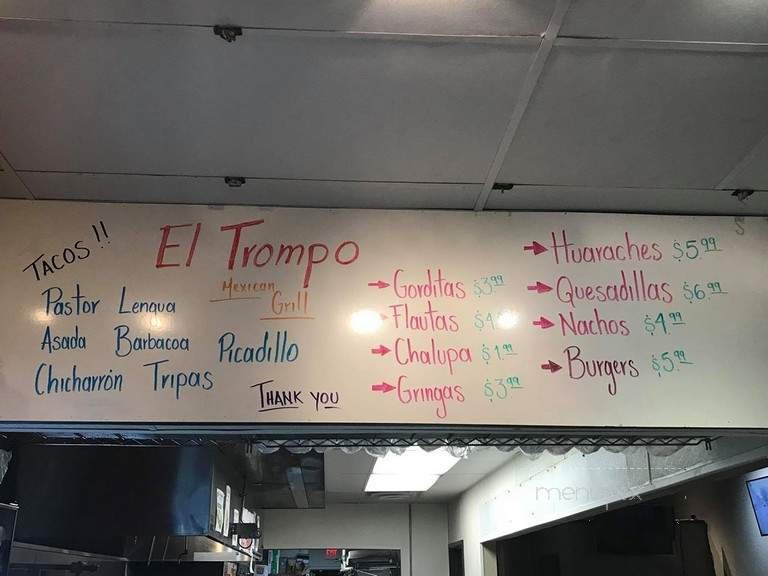 TACOS!!
El Trompo
Mexican
Grill
Pastor Lengua
Asada Barbacoa Picadillo
Chicharrón Tripas
THANK YOU
→ Gorditas $3.99
→ Flautas
→ Chalupa $1.99
→ Gringas $3.99
→ Huaraches $5.99
→ Quesadillas $6.99
→ Nachos $4.99
→ Burgers $5.99